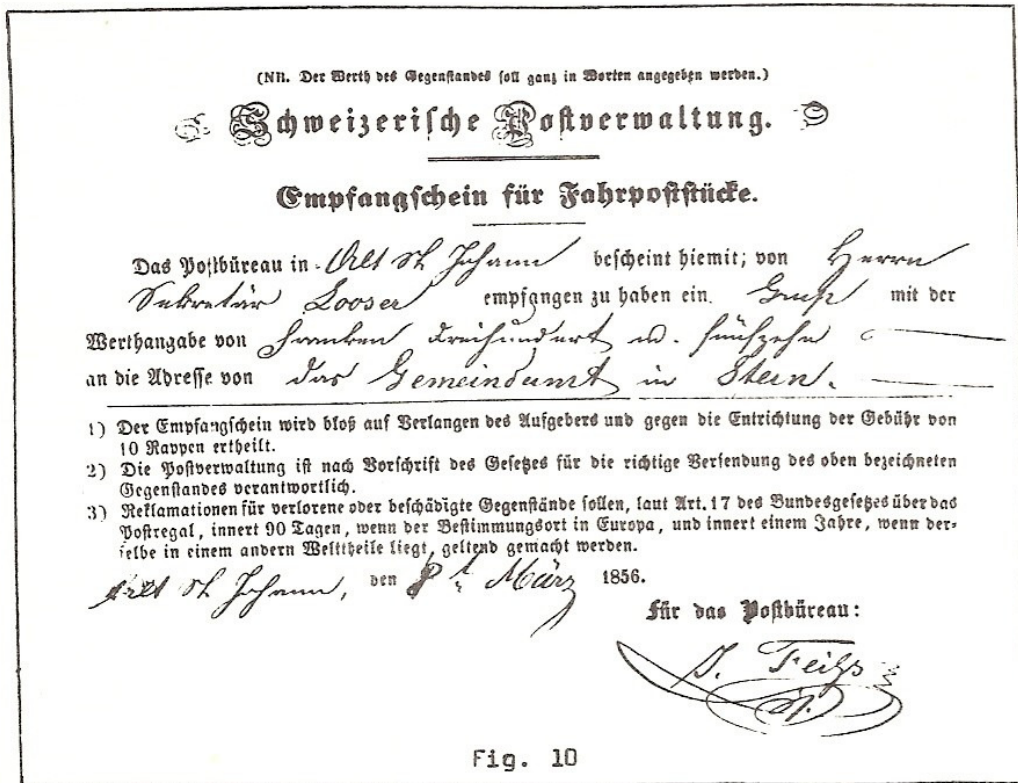 (NB. Der Werth des Gegenstandes soll ganz in Worten angegeben werden.)
Schweizerische Postverwaltung.
Empfangschein für Fahrpoststücke.
Das Postbüreau in Alt St Johann bescheint hiemit; von Herrn
Sekretär Looser empfangen zu haben ein. mit der
Werthangabe von Franken dreihundert u. fünfzehn
an die Adresse von das Gemeindamt in Stein.
1) Der Empfangschein wird bloß auf Verlangen des Aufgebers und gegen die Entrichtung der Gebühr von
10 Rappen ertheilt.
2) Die Postverwaltung ist nach Vorschrift des Gesetzes für die richtige Versendung des oben bezeichneten
Gegenstandes verantwortlich.
3) Reklamationen für verlorene oder beschädigte Gegenstände sollen, laut Art. 17 des Bundesgesetzes über das
Postregal, innert 90 Tagen, wenn der Bestimmungsort in Europa, und innert einem Jahre, wenn der-
selbe in einem andern Welttheile liegt, geltend gemacht werden.
Alt St Johann, den März 1856.
Für das Postbüreau:
Fig. 10